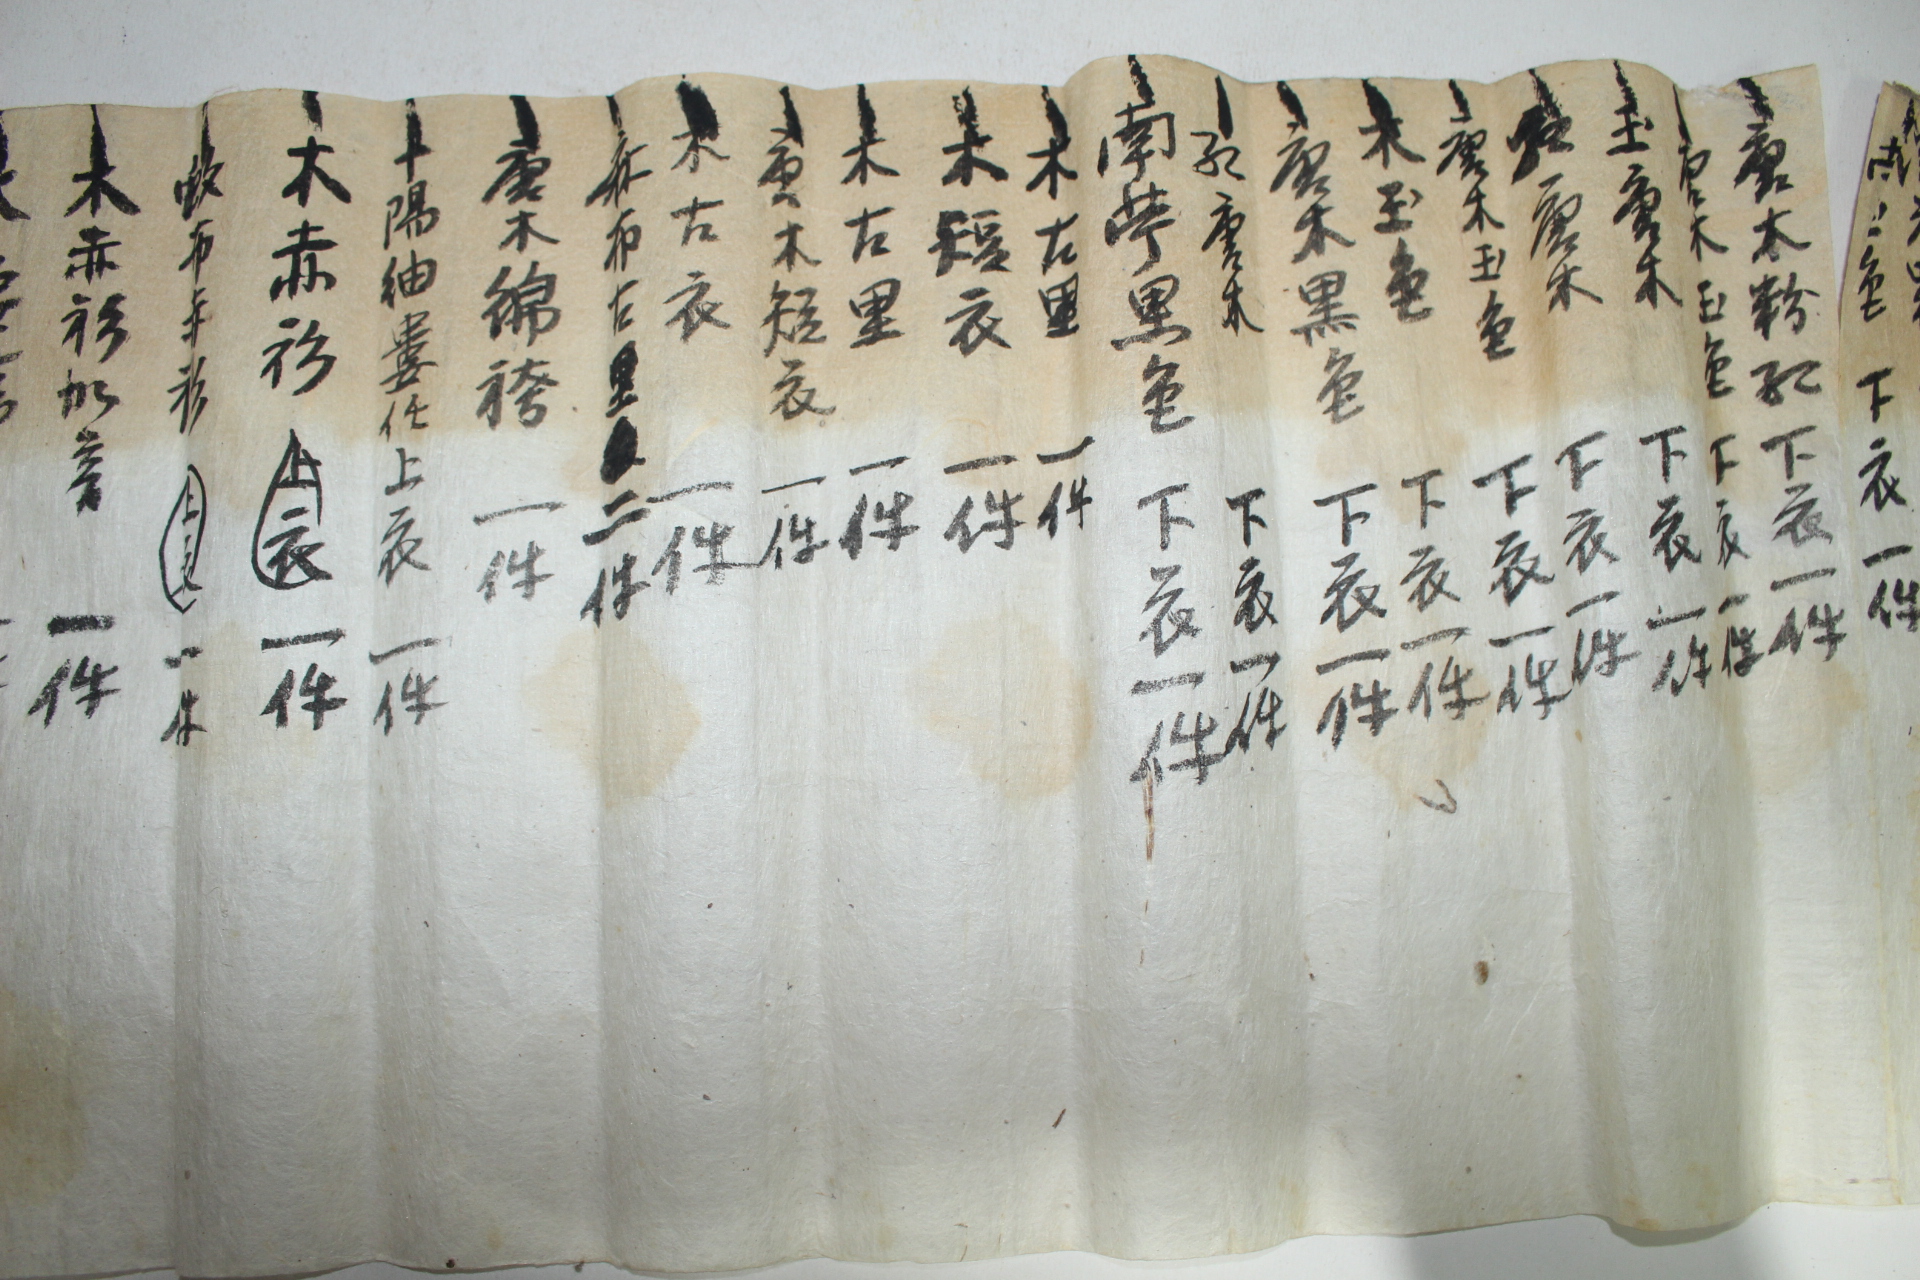 下衣一件
唐木粉紅下衣一件
唐木玉色下衣一件
玉唐木下衣一件
紅唐木下衣一件
唐木玉色下衣一件
木玉色下衣一件
唐木黑色下衣一件
紅唐木下衣一件
南苧黑色下衣一件
木古里一件
木短衣一件
木古里一件
唐木短衣一件
木古衣一件
麻布古里二件
唐木綿袴一件
陽紬婁仕上衣一件
木赤衫上衣一件
布赤衫上衣一件
木赤衫加音一件